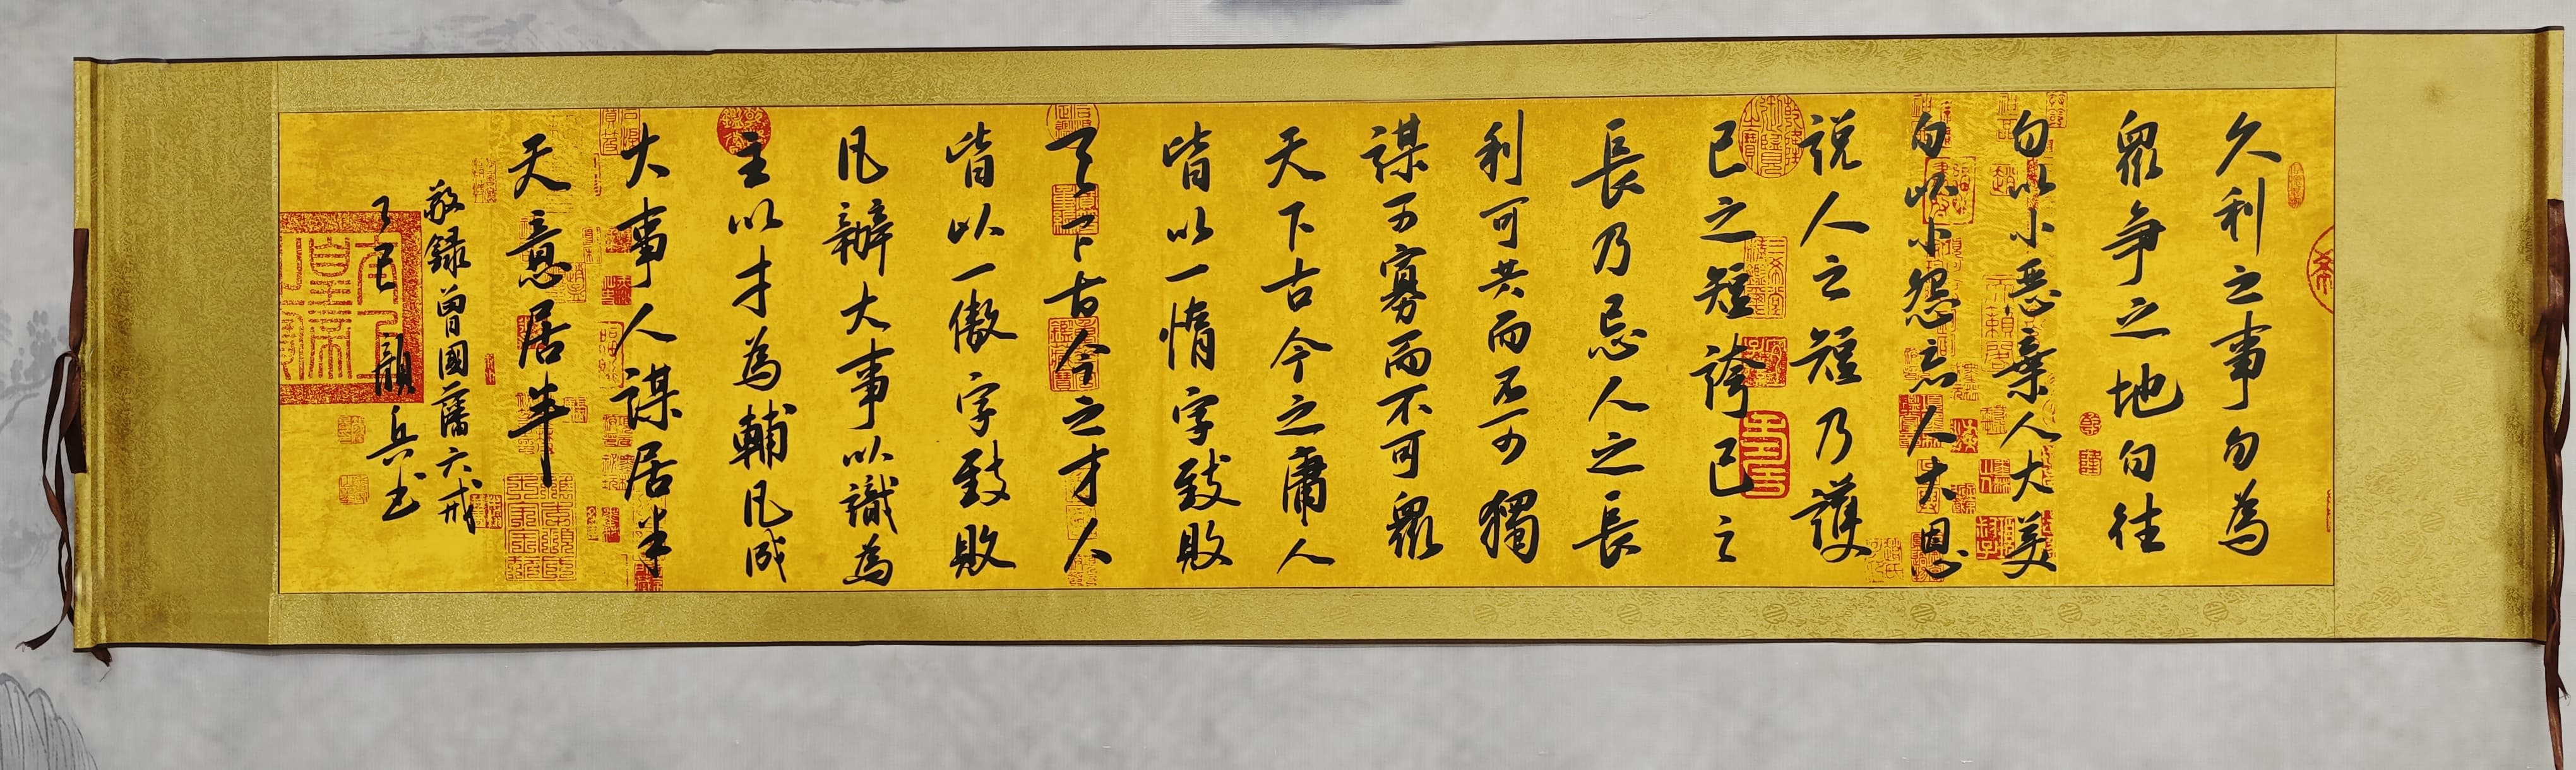 久利之事勿為
眾爭之地勿往
勿以小惡棄人大美
勿以小怨忘人大恩
說人之短乃護
己之短誇己之
長乃忌人之長
利可共而不可獨
謀可寡而不可眾
天下古今之庸人
皆以一惰字致敗
天下古今之才人
皆以一傲字致敗
凡辦大事以識為
主以才為輔凡成
大事人謀居半
天意居半
敬錄曾國藩六戒
乙巳 顯兵书